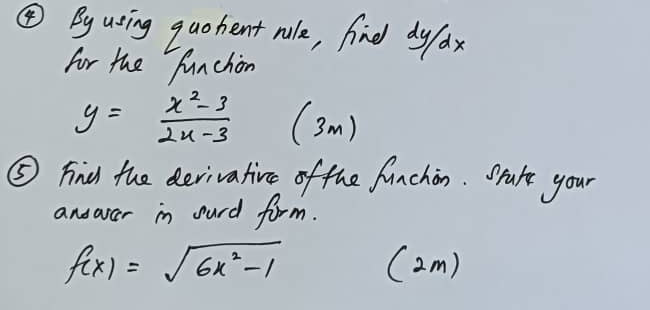 ④ By using quotient rule, find dy/dx
for the function
y = x² - 3 / 2x - 3 (3m)
⑤ Find the derivative of the function. State your
answer in surd form.
f(x) = √6x² - 1 (2m)